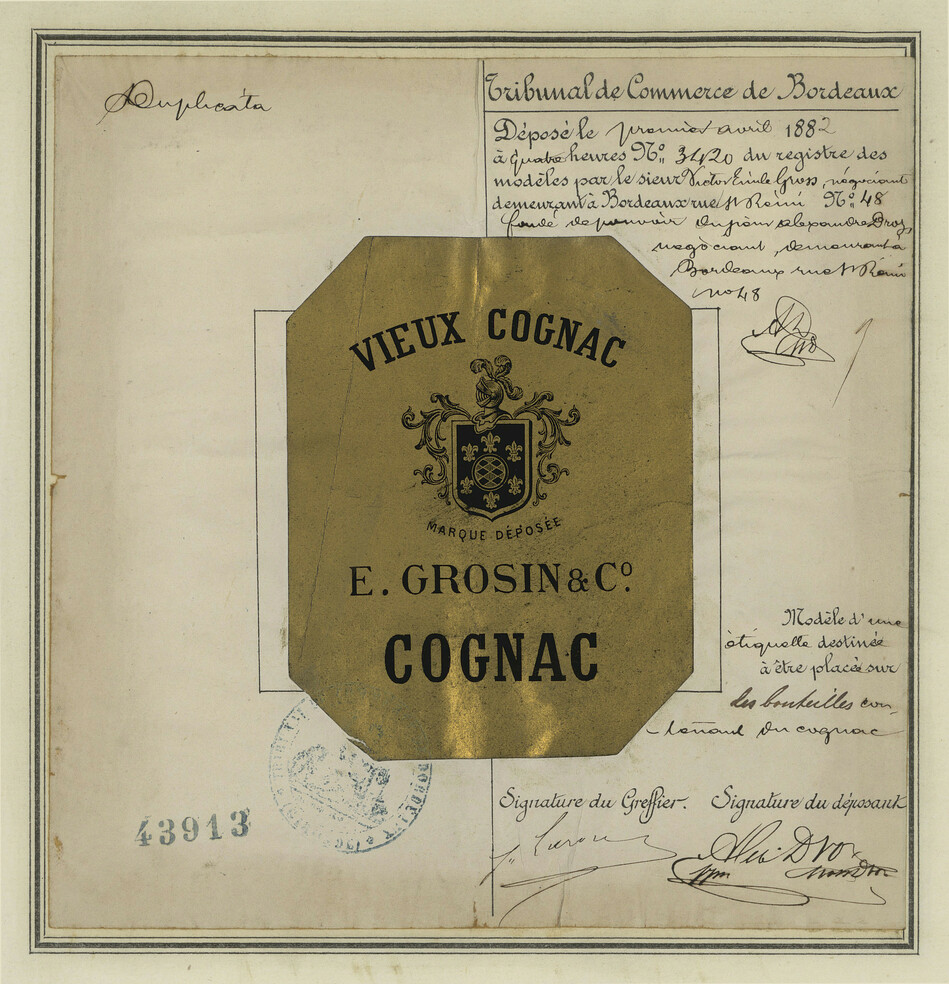 Duplicata
Tribunal de Commerce de Bordeaux
Déposé le premier avril 1882
à quatre heures No. 3420 du registre des
modèles par le sieur Victor Emile Gross, négociant
demeurant à Bordeaux rue St Rémi No. 48
fondé de pouvoir du sieur Alexandre Droz,
négociant, demeurant à
Bordeaux rue St Rémi
no 48
VIEUX COGNAC
MARQUE DÉPOSÉE
E. GROSIN & Co.
COGNAC
Modèle d'une
étiquette destinée
à être placée sur
des bouteilles con-
tenant du cognac
Signature du Greffier. Signature du déposant
43913